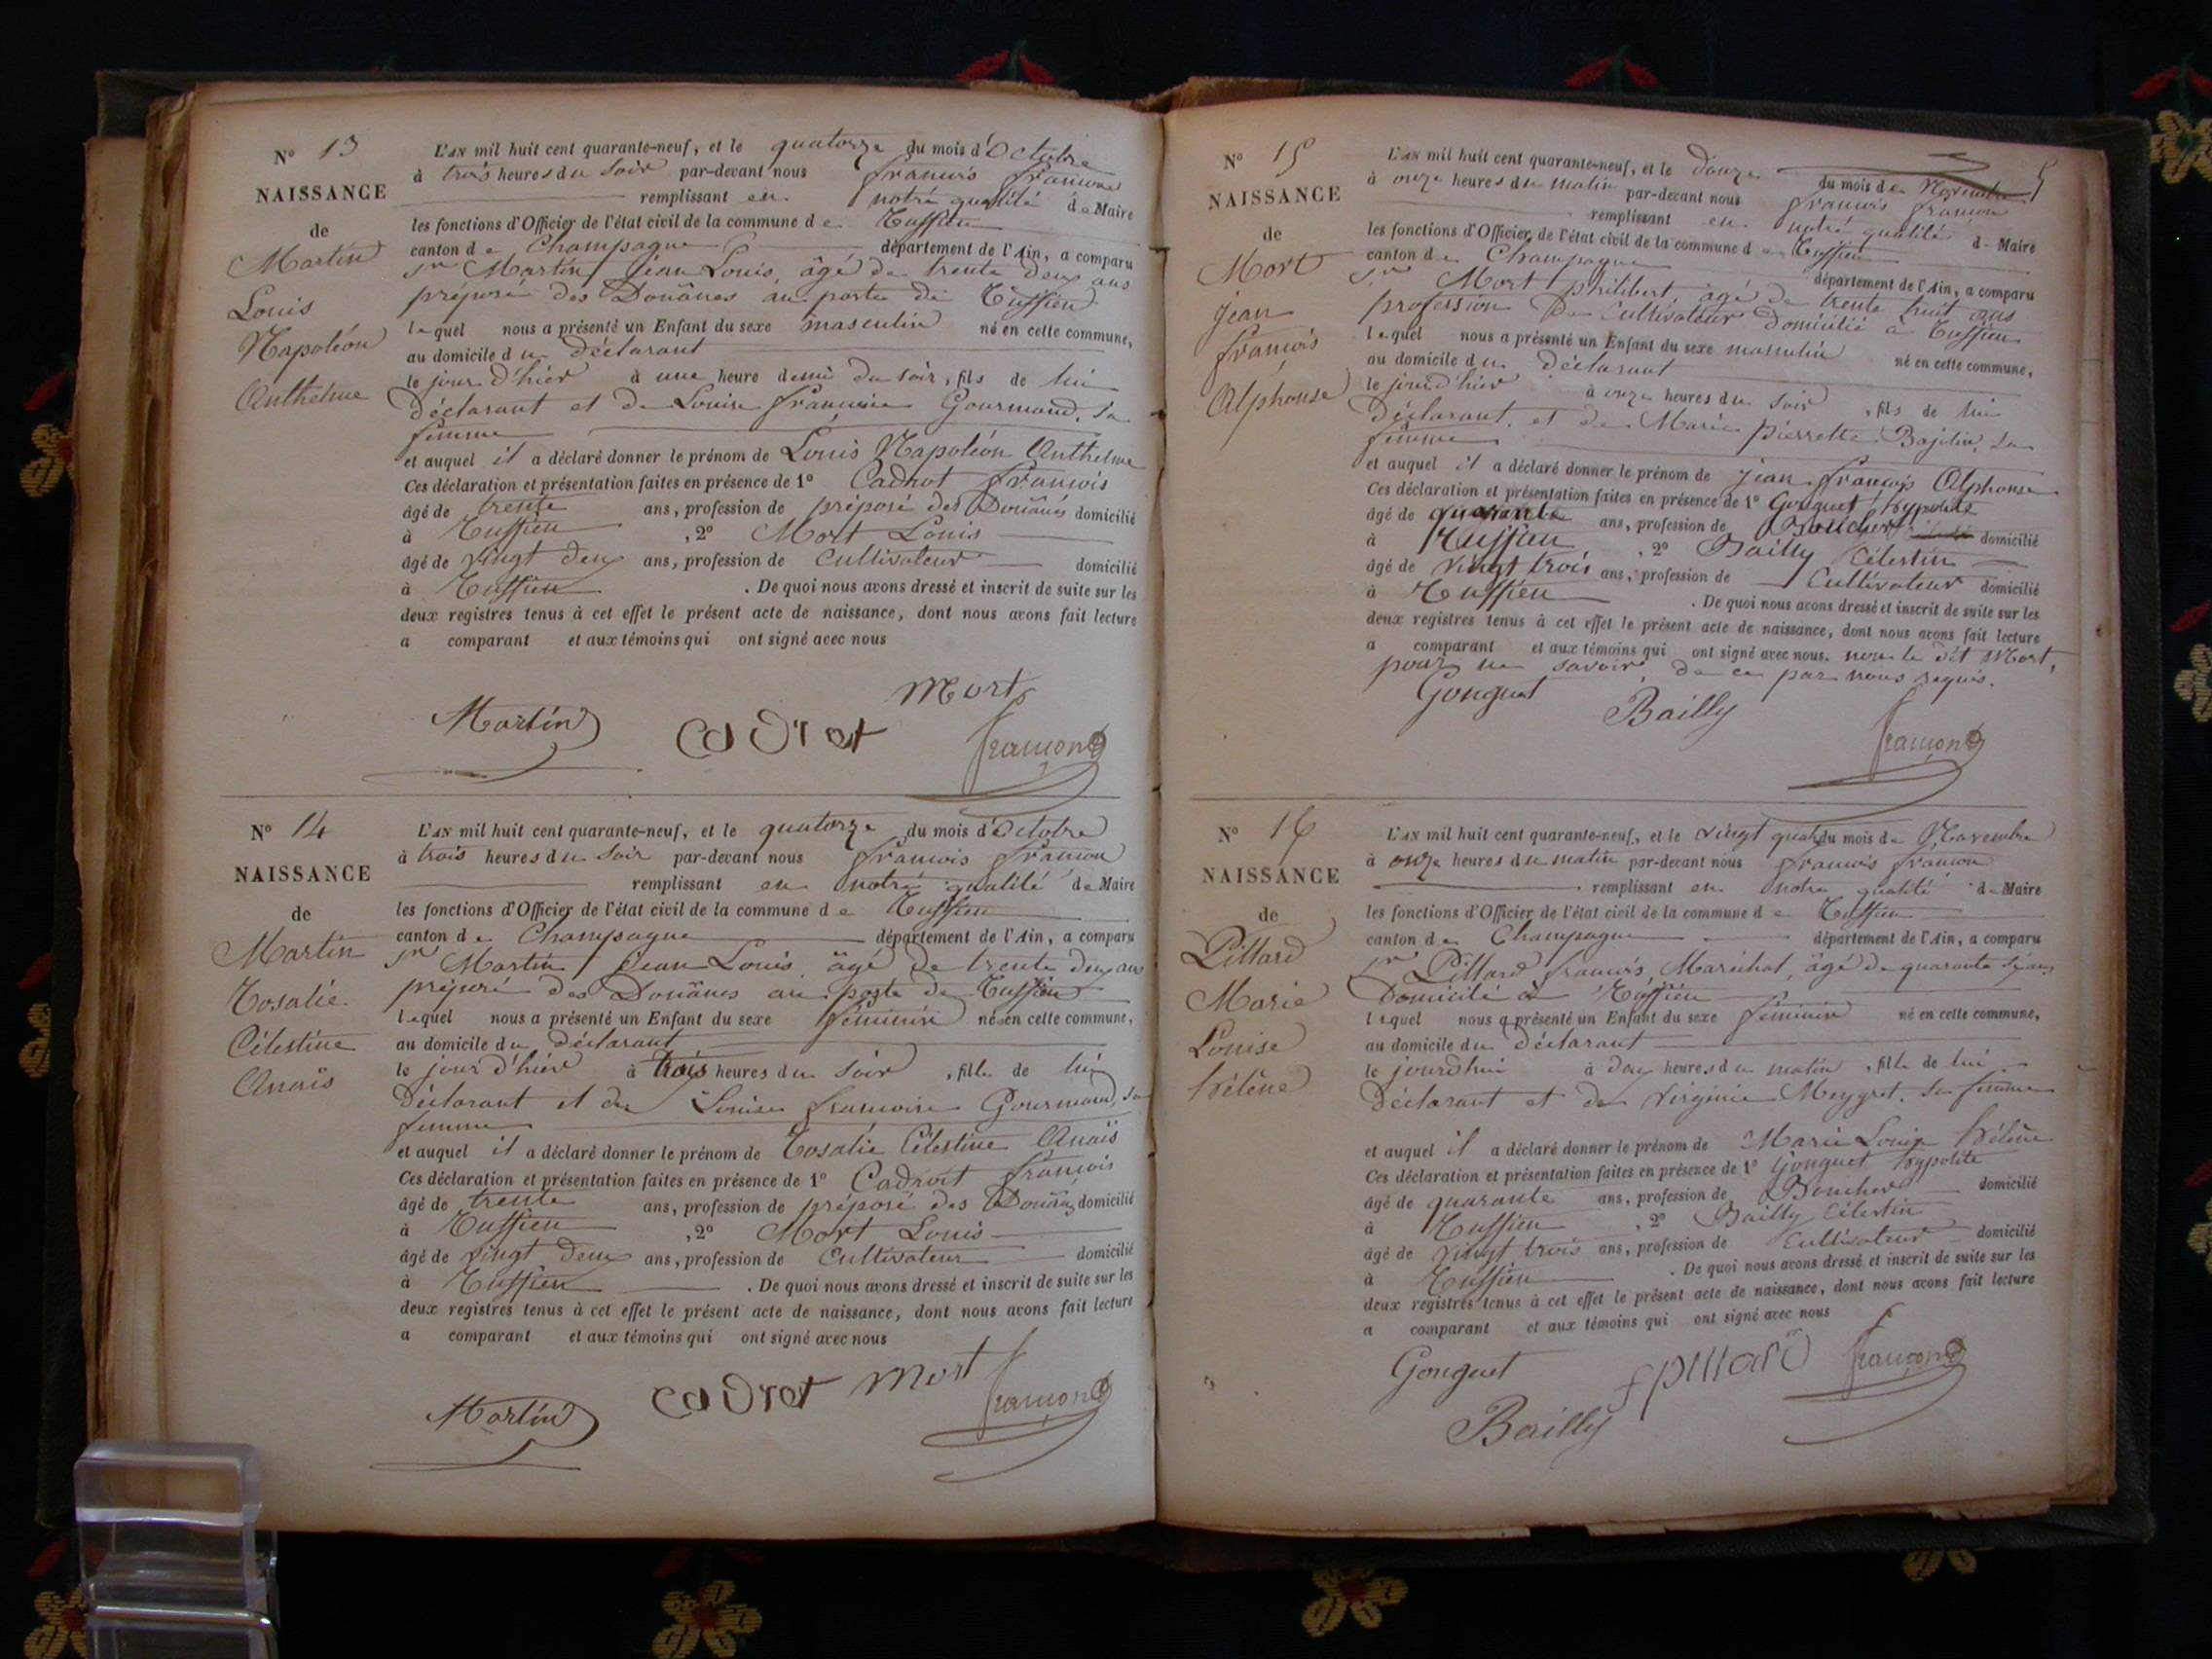 N° 13
NAISSANCE
de
Martin
Louis
Napoléon
Anthelme
L'AN mil huit cent quarante-neuf, et le quatorze du mois d'Octobre
à trois heures du soir par-devant nous françois françon
remplissant en notre qualité de Maire
les fonctions d'Officier de l'état civil de la commune de Ruffieu
canton de Champagne département de l'Ain, a comparu
Sr Martin Jean Louis, âgé de trente deux ans
préposé des Douânes au poste de Ruffieu
lequel nous a présenté un Enfant du sexe masculin né en cette commune,
au domicile du déclarant
le jour d'hier à une heure demi du soir, fils de lui
déclarant et de Louise françoise Gourmand, sa
femme
et auquel il a déclaré donner le prénom de Louis Napoléon Anthelme
Ces déclaration et présentation faites en présence de 1° Cadrot françois
âgé de trente ans, profession de préposé des Douânes domicilié
à Ruffieu, 2° Mort Louis
âgé de vingt deux ans, profession de Cultivateur domicilié
à Ruffieu. De quoi nous avons dressé et inscrit de suite sur les
deux registres tenus à cet effet le présent acte de naissance, dont nous avons fait lecture
a comparant et aux témoins qui ont signé avec nous
Mort
Martin cadrot françon
N° 14
NAISSANCE
de
Martin
Rosalie
Célestine
Anaïs
L'AN mil huit cent quarante-neuf, et le quatorze du mois d'Octobre
à trois heures du soir par-devant nous françois françon
remplissant en notre qualité de Maire
les fonctions d'Officier de l'état civil de la commune de Ruffieu
canton de Champagne département de l'Ain, a comparu
Sr Martin Jean Louis, âgé de trente deux ans
préposé des Douânes au poste de Ruffieu
lequel nous a présenté un Enfant du sexe féminin né en cette commune,
au domicile du déclarant
le jour d'hier à trois heures du soir, fille de lui
déclarant et de Louise françoise Gourmand, sa
femme
et auquel il a déclaré donner le prénom de Rosalie Célestine Anaïs
Ces déclaration et présentation faites en présence de 1° Cadrot françois
âgé de trente ans, profession de préposé des Douânes domicilié
à Ruffieu, 2° Mort Louis
âgé de vingt deux ans, profession de Cultivateur domicilié
à Ruffieu. De quoi nous avons dressé et inscrit de suite sur les
deux registres tenus à cet effet le présent acte de naissance, dont nous avons fait lecture
a comparant et aux témoins qui ont signé avec nous
Martin cadrot Mort françon
5
N° 15
NAISSANCE
de
Mort
Jean
françois
Alphonse
L'AN mil huit cent quarante-neuf, et le douze du mois de Novembre
à onze heures du matin par-devant nous françois françon
remplissant en notre qualité de Maire
les fonctions d'Officier de l'état civil de la commune de Ruffieu
canton de Champagne département de l'Ain, a comparu
Sr Mort philibert âgé de trente huit ans
profession de Cultivateur domicilié à Ruffieu
lequel nous a présenté un Enfant du sexe masculin né en cette commune,
au domicile du déclarant
le jour d'hier à onze heures du soir, fils de lui
déclarant, et de Marie pierrette Bajolin, sa
femme
et auquel il a déclaré donner le prénom de Jean françois Alphonse
Ces déclaration et présentation faites en présence de 1° Gouguet hypolite
âgé de quarante ans, profession de Boucher domicilié
à Ruffieu, 2° Bailly Célestin
âgé de vingt trois ans, profession de Cultivateur domicilié
à Ruffieu. De quoi nous avons dressé et inscrit de suite sur les
deux registres tenus à cet effet le présent acte de naissance, dont nous avons fait lecture
a comparant et aux témoins qui ont signé avec nous. non le dit Mort,
pour ne savoir, de ce par nous requis.
Gouguet Bailly françon
N° 16
NAISSANCE
de
Pillard
Marie
Louise
hélène
L'AN mil huit cent quarante-neuf, et le vingt quatre du mois de Novembre
à onze heures du matin par-devant nous françois françon
remplissant en notre qualité de Maire
les fonctions d'Officier de l'état civil de la commune de Ruffieu
canton de Champagne département de l'Ain, a comparu
Sr Pillard françois, Maréchal, âgé de quarante six ans
Domicilié à Ruffieu
lequel nous a présenté un Enfant du sexe féminin né en cette commune,
au domicile du déclarant
le jourdhui à deux heures du matin, fille de lui
déclarant et de Virginie Meygret, sa femme
et auquel il a déclaré donner le prénom de Marie Louise hélène
Ces déclaration et présentation faites en présence de 1° Gouguet hypolite
âgé de quarante ans, profession de Boucher domicilié
à Ruffieu, 2° Bailly Célestin
âgé de vingt trois ans, profession de Cultivateur domicilié
à Ruffieu. De quoi nous avons dressé et inscrit de suite sur les
deux registres tenus à cet effet le présent acte de naissance, dont nous avons fait lecture
a comparant et aux témoins qui ont signé avec nous
Gouguet fpillard françon
Bailly